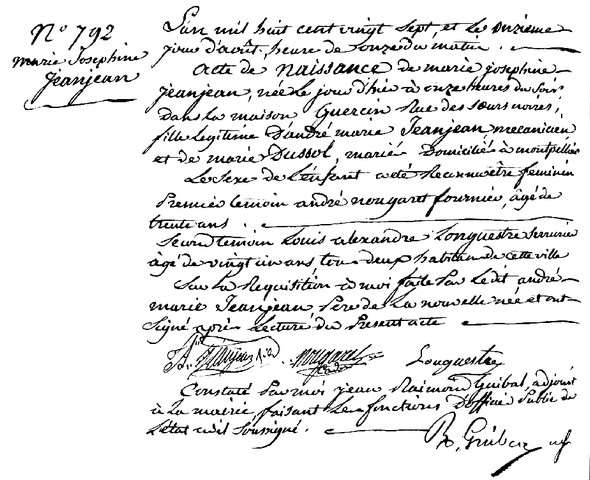 N° 792
Marie Josephine
Jeanjean
L'an mil huit cent vingt sept, et le onzieme
jour d'août, heure de onze du matin.
Acte de Naissance de marie josephine
jeanjean, née le jour d'hier à onze heures du soir
dans la maison Quercin Rue des sœurs noires,
fille legitime d'andré marie Jeanjean mecanicien
et de marie Dussol, mariés Domiciliés à montpellier
Le Sexe de L'enfant a été Reconnu être feminin
Premier temoin andré nougaret fournier, âgé de
trente ans.
Second temoin Louis alexandre Longuestre serrurier
âgé de vingt un ans tous deux habitans de cette ville
Sur la Requisition à moi faite Par Ledit andré
marie Jeanjean Pere de La nouvelle née et ont
Signé après Lecture du Present acte
nougaret Longuestre
Constaté Par moi jean Raimond Guibal, adjoint
à La mairie, faisant Les fonctions D'officier Public de
L'état civil Soussigné.
R. Guibal adj